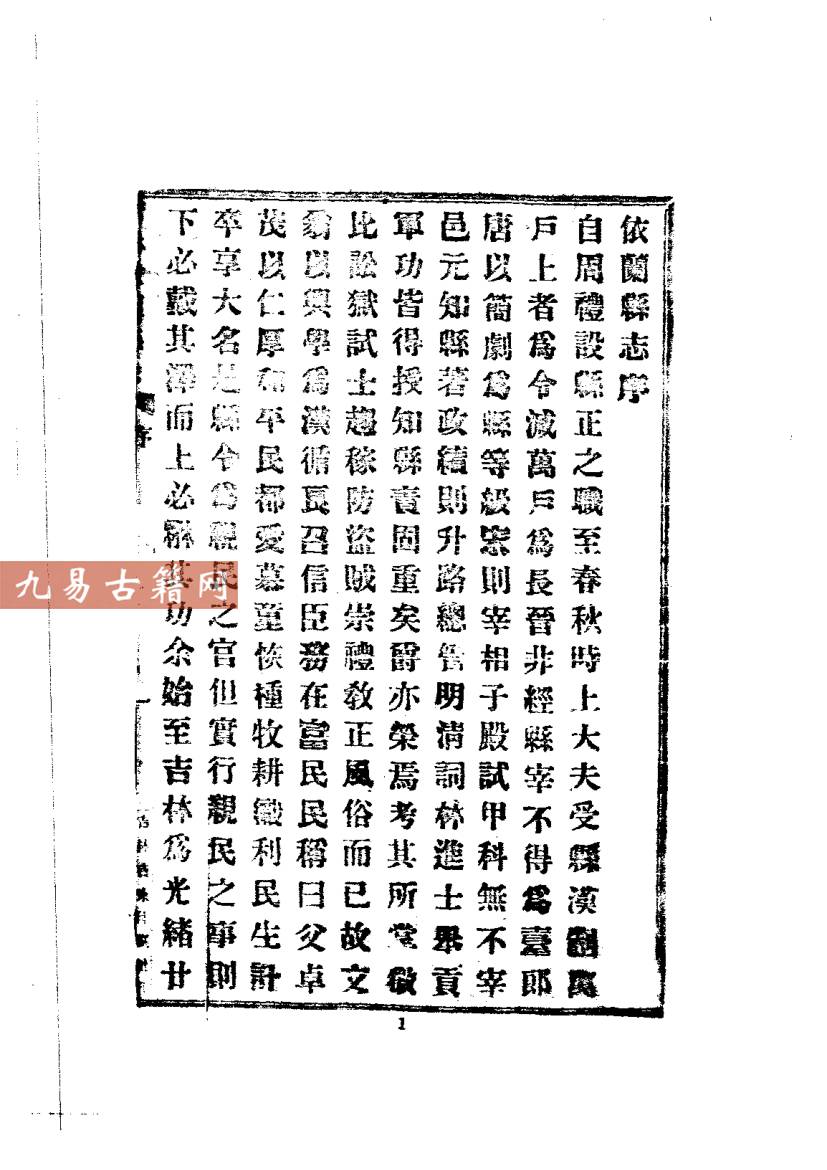 依蘭縣志序
自周禮設縣正之職至春秋時上大夫受縣漢制萬
戶上者爲令減萬戶爲長晉非經縣宰不得爲臺郎
唐以簡劇爲縣等級宋則宰相子殿試甲科無不宰
邑元知縣著政績則升路總管明清詞林進士舉貢
軍功皆得授知縣責固重矣爵亦榮焉考其所掌徵
比訟獄試士趨稼防盜賊崇禮敎正風俗而已故文
翁以興學爲漢循良召信臣務在富民民稱曰父卓
茂以仁厚和平民都愛慕童恢種牧耕織利民生計
卒享大名是縣令爲親民之官但實行親民之事則
下必戴其澤而上必其功余始至吉林爲光緒廿
序
1
九易古籍网